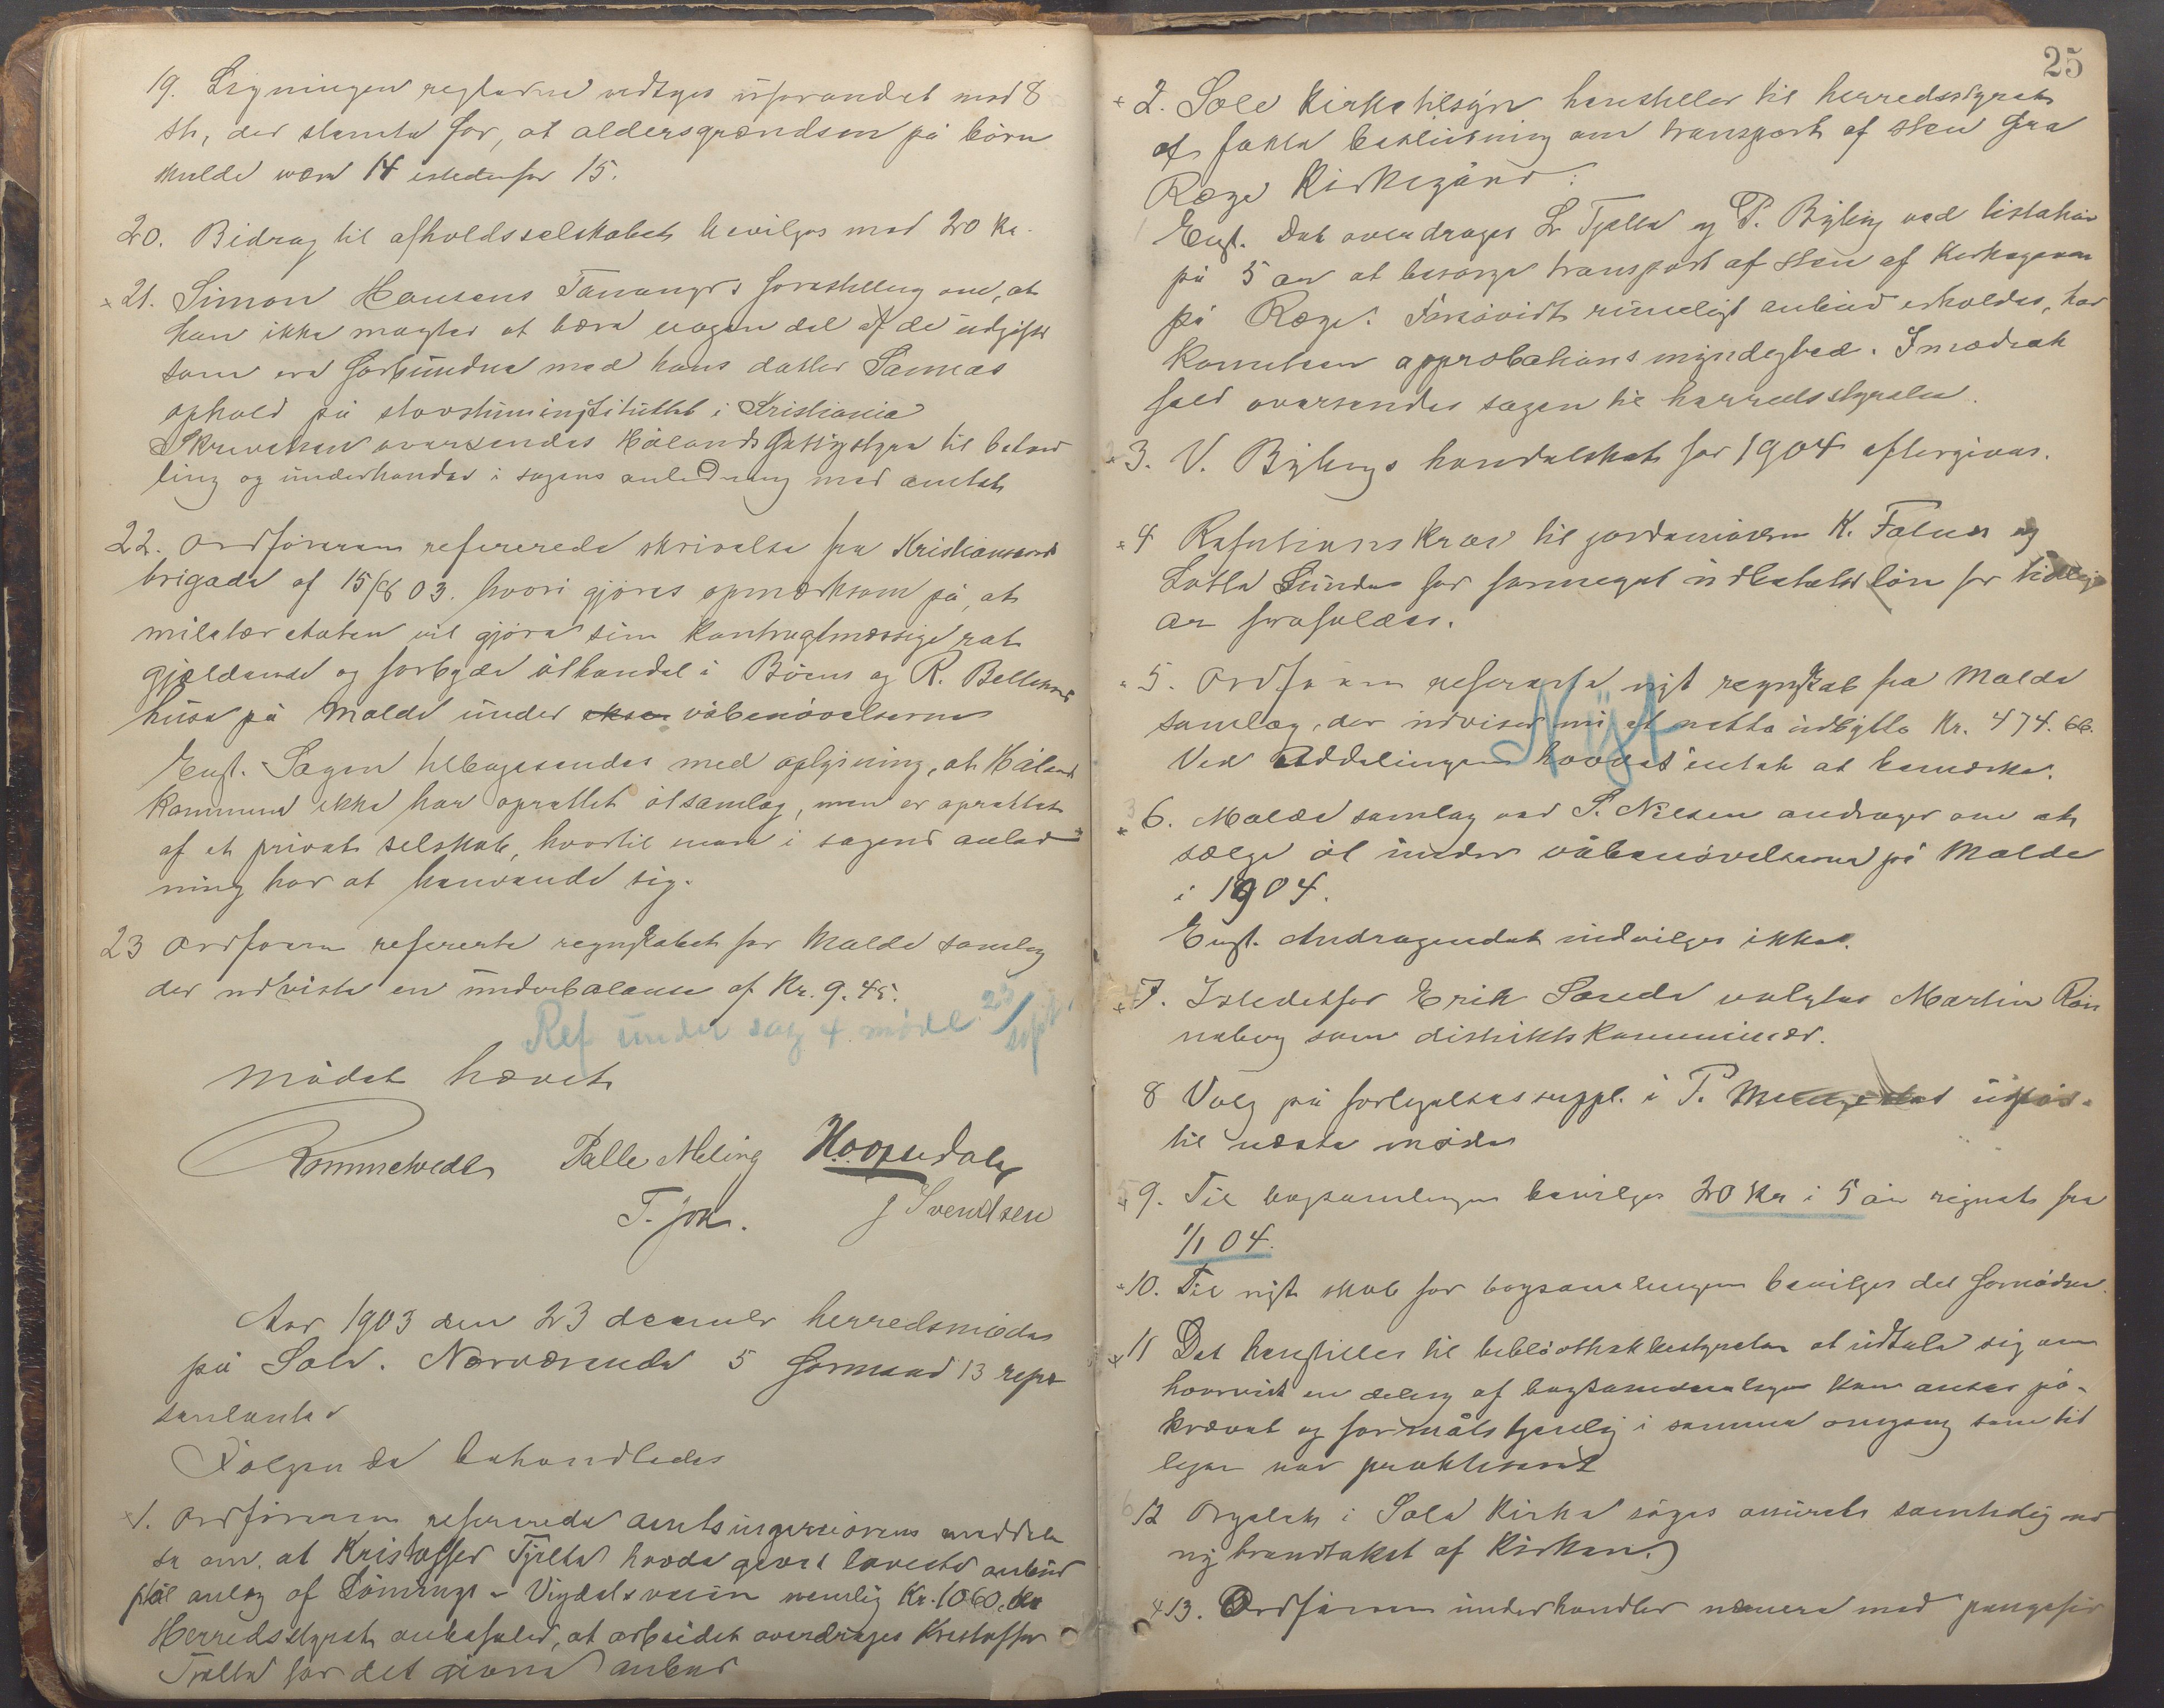 19. Ligningen reglerne vedtages uforandret mod 8
st, der stemte for, at aldersgrændsen på børn
skulde være 14 istedenfor 15.
20. Bidrag til afholdsselskabet bevilges med 20 Kr.
21. Simon Hansens Tananger forestilling om, at
han ikke magter at bære nogen del af de udgifter
som ere forbundne med hans datter Sannas
ophold på døvstuminstituttet i Kristiania
Skrivelsen oversendes Hålands fattigstyre til behand
ling og underhandler i sagens anledning med amtet
22. Ordføreren refererede skrivelse fra Kristiansands
brigade af 15/8 03. hvori gjøres opmærksom på, at
militæretaten vil gjøre sin kontragtmæssige ret
gjældende og forbyde ølhandel i Børns og R. Bellesens
huse på Malde under våbenøvelserne
Enst. Sagen tilbagesendes med oplysning, at Håland
kommune ikke har oprettet ølsamlag, men er oprettet
af et privat selskab, hvortil man i sagens anled
ning har at henvende sig.
23 Ordføreren refererte regnskabet for Malde samlag
der udviste en underbalance af Kr. 9.45.
Ref under sag 4 møde 25/sept.
Mødet hævet
Rommetvedt Palle Meling H. Opsedal
T. Joa. J Svendsen
Aar 1903 den 23 decembr herredsmøde
på Sole. Nærværende 5 formænd 13 repre
sentanter
Følgende behandledes
1. Ordføreren refererede amtsingeniørens meddelel
se om, at Kristoffer Tjelta havde gjort laveste anbud
på anlæg af Vigdalsveien nemlig Kr. 1060.
Herredsstyret anbefaler, at arbeidet overdrages Kristoffer
Tjelta for det givne anbud
25
2. Sole Kirketilsyn henstiller til herredsstyret
at fatte beslutning om transport af sten fra
Ræge Kirkegård:
Enst. Det overdrages L. Tjelta og P. Byberg ved listeføring
på 5 år at besørge transport af sten af Kirkegården
på Ræge. Forsåvidt rimeligt anbud erholdes, har
komiteen approbationsmyndighed. I modsat
fald oversendes sagen til herredsstyrelsen.
3. V. Bybergs hundeskat for 1904 eftergives.
4 Refutionskrav til jordemødrene K. Folum og
Lotta Sunde for formeget udbetalt løn for tidligere
år frafaldes.
5. Ordføreren refererte nyt regnskab fra Malde
samlag, der udviser nu et netto udbytte Kr. 474.66.
Ved uddelingen havdes intet at bemærke.
Nyt
6. Malde samlag ved S. Nilsen andrager om at
sælge øl under våbenøvelserne på Malde
i 1904.
Enst. Andragendet indvilges ikke.
7. Istedetfor Erik Sørnes valgtes Martin Røn
neberg som distriktskommissær.
8 Valg på forligelsessuppl. i P. sted udsættes
til næste møde
9. Til bogsamlingen bevilges 20 Kr i 5 år regnet fra
1/1 04.
10. Til nyt skab for bogsamlingen bevilges det fornødne.
11 Det henstilles til bibliothekbestyrelsen at udtale sig om
hvorvidt en deling af bogsamlingen kan anses på-
krævet og formålstjenlig i samme omgang som tid
ligere var praktiseret
12 Orgelet i Sola Kirke søges assureret samtidig med
ny brandtakst af Kirken.
13. Ordføreren underhandler nærmere med